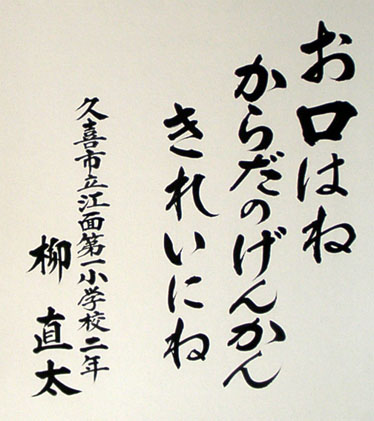 お口はね
からだのげんかん
きれいにね
久喜市立江面第一小学校二年
柳直太